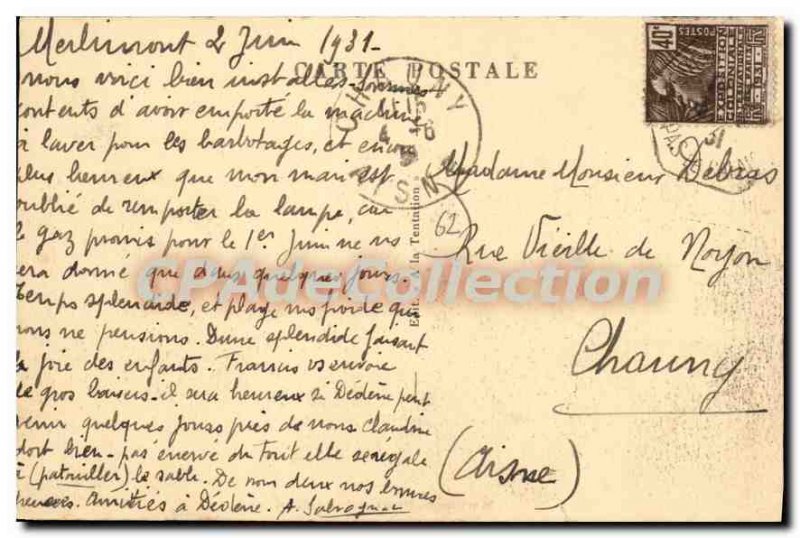 Merlimont 2 Juin 1931-
CARTE POSTALE
nous voici bien installés - sommes
contents d'avoir emporté la machine
à laver pour les barbotages, et encore
plus heureux que mon mari ait
oublié de remporter la lampe, car
le gaz promis pour le 1er Juin ne ns
sera donné que dans quelques jours.
Temps splendide, et plage ns froide que
nous ne pensions. Dune splendide faisant
la joie des enfants. Francis vs envoie
de gros baisers - il sera heureux si Dédène peut
venir quelques jours près de nous. Claudine
dort bien - pas énervé du tout elle se régale
à (patouiller) le sable. De nous deux nos bonnes
pensées. Amitiés à Dédène. A. Salvagnac
Edit. A la Tentation.
CHAUNY
AISNE
40c
POSTES
EXPOSITION
COLONIALE
INTERNATIONALE
PARIS 1931
31
62
Madame Monsieur Debras
Rue Vieille de Noyon
Chauny
(Aisne)
CPADeCollection